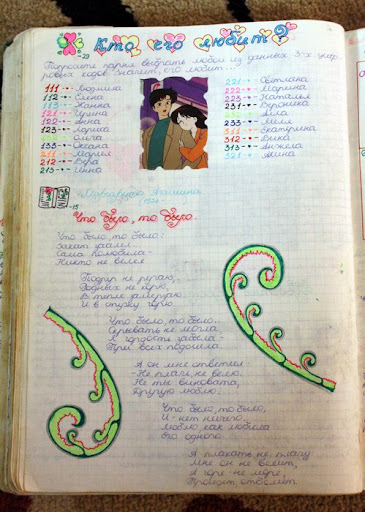 Кто его любит?
-23
Попросите парня выбрать любой из данных 3-х циф-
ровых кодов. Значит, его любит...
111 - Людмила
112 - Елена
113 - Жанна
121 - Ирина
122 - Анна
123 - Лариса
Ольга
133 - Оксана
211 - Мария
212 - Вера
213 - Инна
221 - Светлана
222 - Марина
223 - Наталья
231 - Вероника
Алла
233 -
311 - Екатерина
312 - Вика
313 - Анжела
321 - Алина
-15
Что было, то было.
Что было, то было:
Закат
Сама полюбила -
Никто не велел
Подруг не ругаю,
Родных не корю,
В тепле замерзаю
И в стужу горю.
Что было, то было..
Скрывать не могла,
Я гордость забыла -
При всех подошла.
А он мне ответил -
Не плачь, не велю.
Не ты виновата,
Другую люблю.
Что было, то было,
И - нет ничего..
Люблю, как любила
Его одного.
А плакать не плачу
Мне он не велит,
А горе - не море,
Пройдет, отболит.